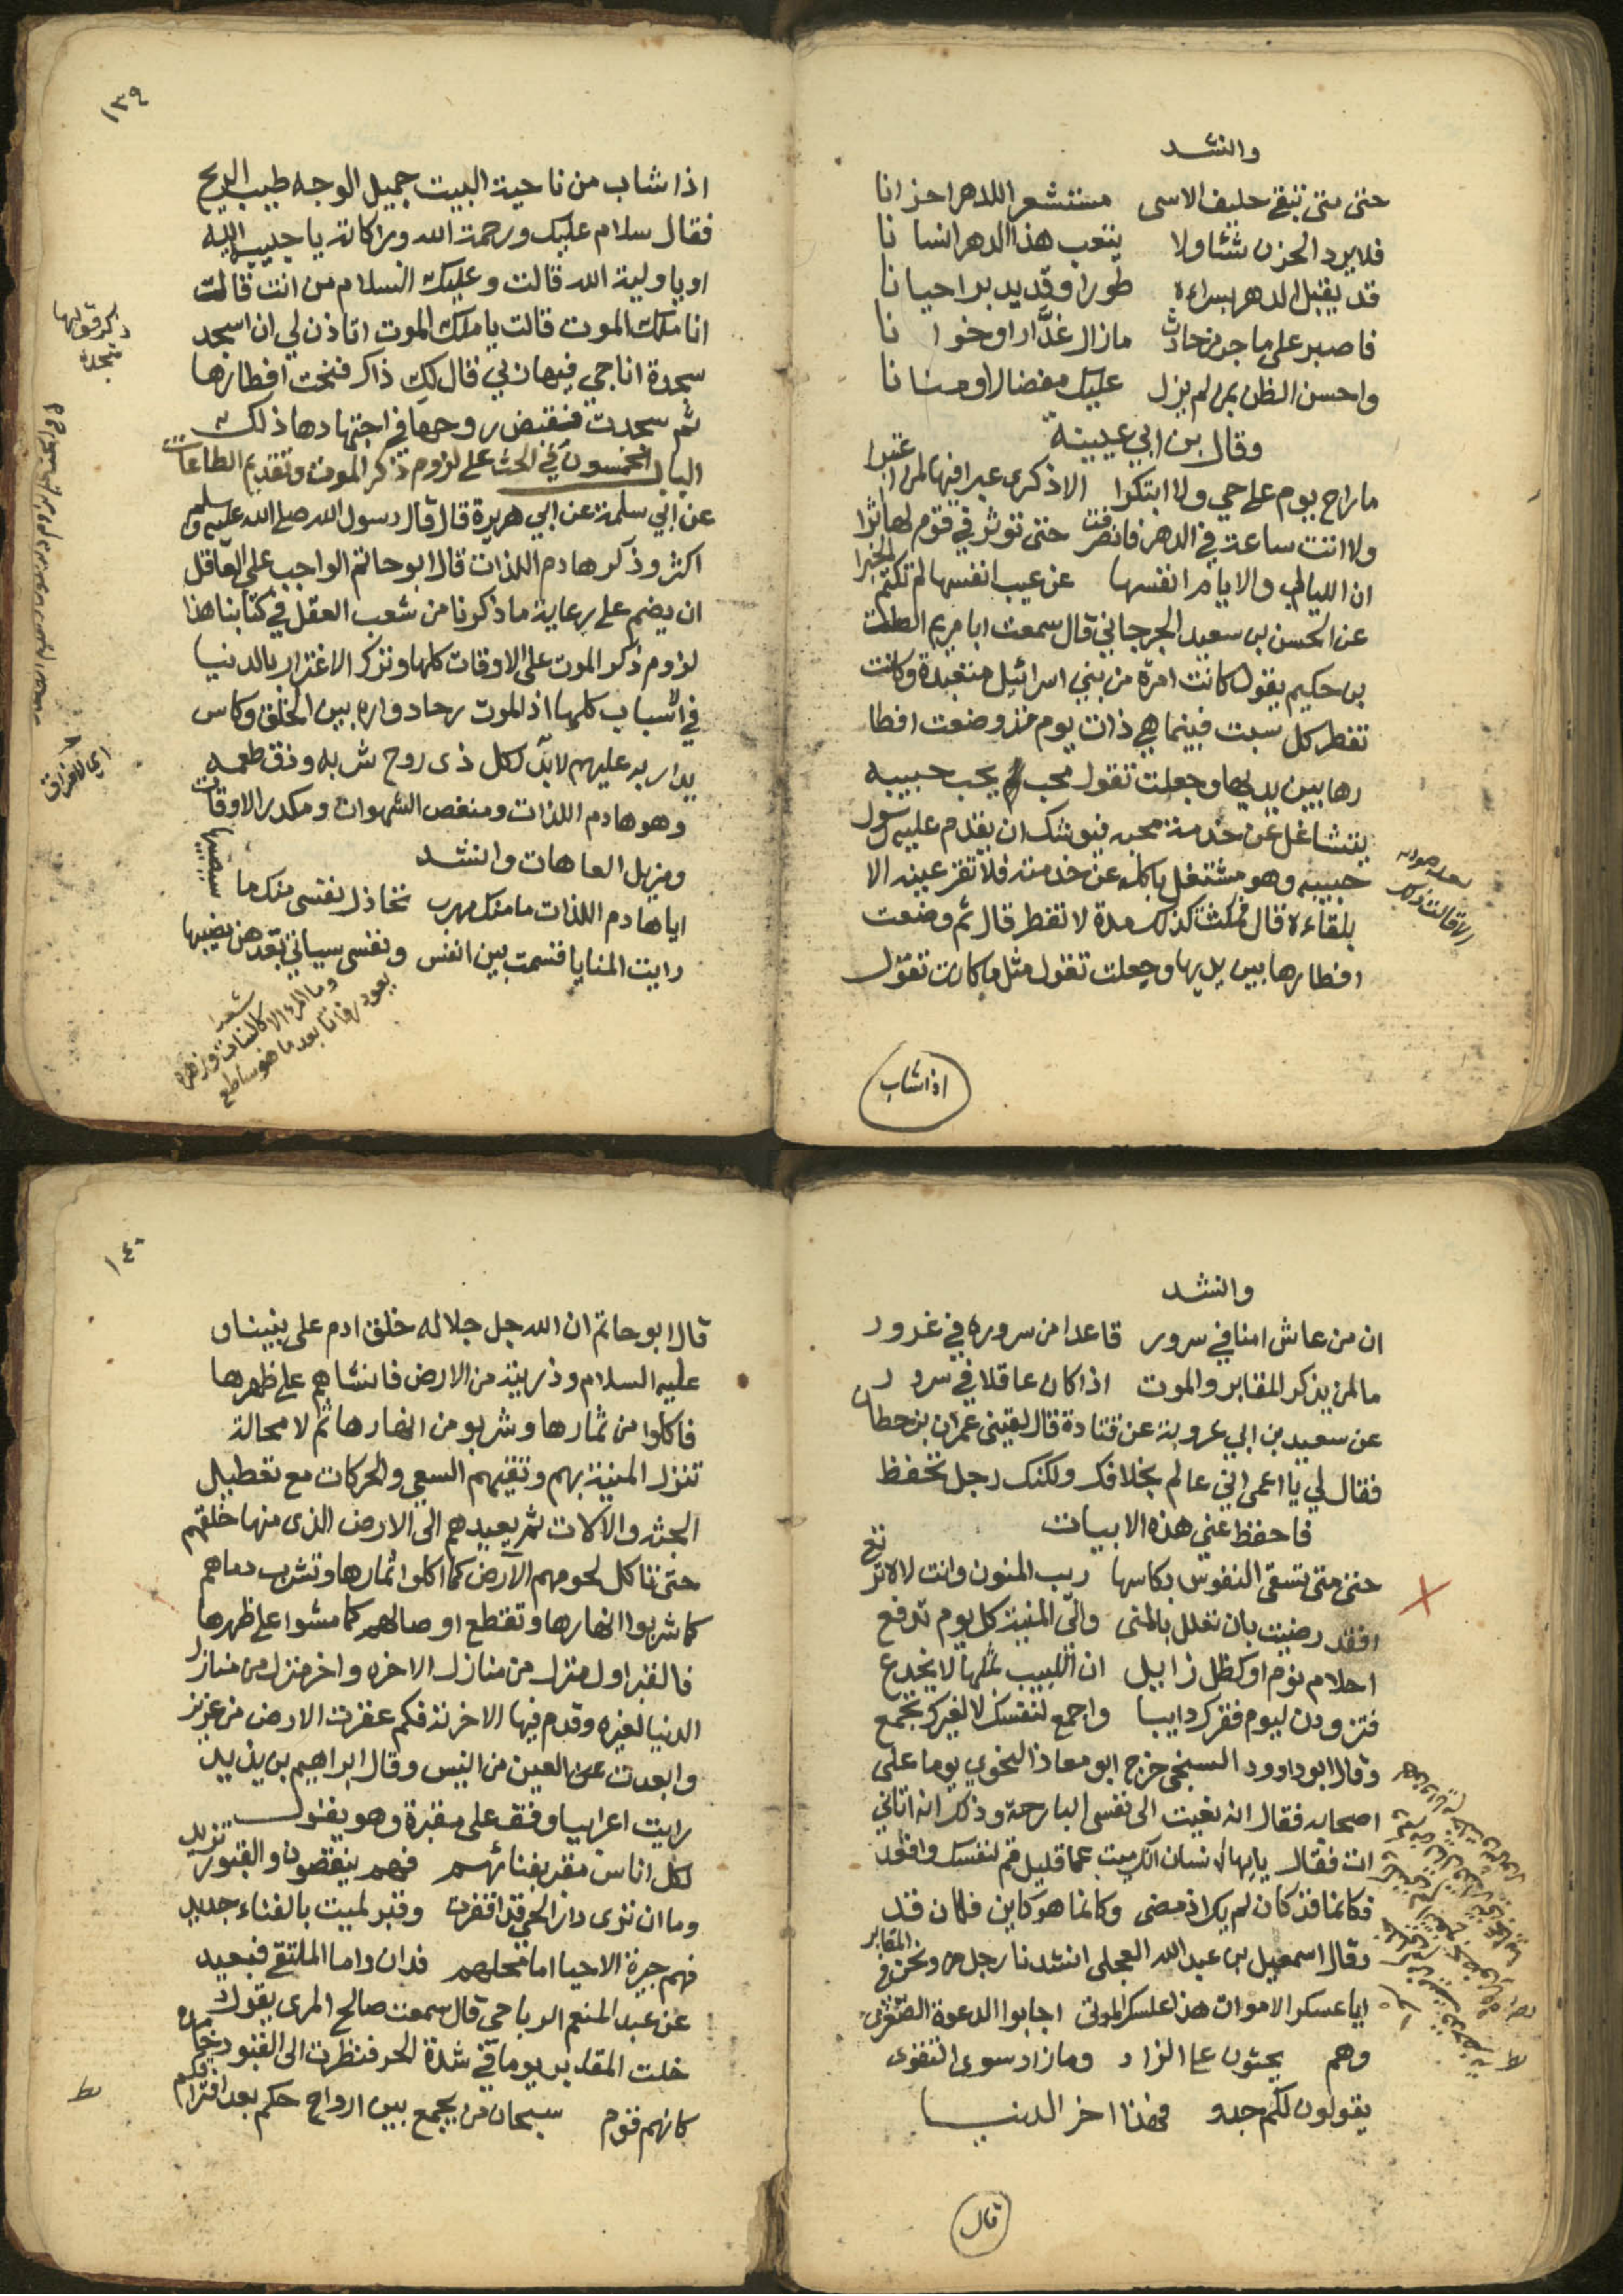 وانشد
حتى متى تبقى حليف الاسى مستشعرا للدهر احزانا
فلا يرد الحزن شئا ولا يتعب هذا الدهر انسانا
قد يقبل الدهر بسراءه طورا وقد يدبر احيانا
فاصبر على ما جر من حادث ما زال غدّارا وخوانا
واحسن الظن بمن لم يزل عليك مفضالا ومنانا
وقال بن ابي عيينة
ما راح يوم على حي ولا ابتكرا الا ذكرى عبرا فيها لمن اعتبرا
ولا اتت ساعة في الدهر فانصرفت حتى توثر في قوم لها اثرا
ان الليالي والايام انفسها عن عيب انفسها لم تكتم الخبرا
عن الحسن بن سعيد الجرجاني قال سمعت ابا مريم الصلت
بن حكيم يقول كانت امرة من بني اسرائيل متعبدة وكانت
تفطر كل سبت فبينما هي ذات يوم منذ وضعت افطا
رها بين يديها وجعلت تقول محب يحب حبيبه
يتشاغل عن خدمة محبه فيوشك ان يقدم عليه رسول
حبيبه وهو مشتغل باكله عن خدمته فلا تقر عينه الا
بلقاءه قال فمكثت كذلك مدة لا تفطر قال ثم وضعت
افطارها بين يديها وجعلت تقول مثل ما كانت تقول
اذا شاب
١٣٩
اذا شاب من ناحية البيت جميل الوجه طيب الريح
فقال سلام عليك ورحمة الله وبراكاته يا حبيب الله
او يا ولية الله قالت وعليك السلام من انت قالت
انا ملك الموت قالت يا ملك الموت اتاذن لي ان اسجد
سجدة اناجي فيها ربي قال لكِ ذاكر فنحت افطارها
ثم سجدت فنقبض روحها في اجتهادها ذلك
الباب الخمسون في الحث على لزوم ذكر الموت وتقديم الطاعات
عن ابي سلمة عن ابي هريرة قال قال رسول الله صلى الله عليه وسلم
اكثر وذكر هادم اللذات قال ابو حاتم الواجب على العاقل
ان يضم على رعاية ما ذكرنا من شعب العقل في كتابنا هذا
لزوم ذكر الموت على الاوقات كلها وترك الاغترار بالدنيا
في الاسباب كلها اذ للموت رحاد واره بين الخلق وكاس
يدار به عليهم لابد لكل ذى روح شربه وذق طعمه
وهو هادم اللذات ومنغص الشهوات ومكدر الاوقات
ومزيل العاهات وانشد
ايا هادم اللذات ما منك مهرب تحاذر نفسى منك ما سيصيبها
رايت المنايا قسمت بين انفس ونفسى سياتي بعدهن نصيبها
شعر
وما المرء الا كالنبات وزهره
يعود رفاتا بعد ما هو ساطع
وانشد
ان من عاش امنا في سرور قاعدا من سروره في غرور
ما لمن يذكر المقابر والموت اذا كان عاقلا في سرور
عن سعيد بن ابي عروبة عن قتادة قال لقيني عمران بن حطان
فقال لي يا اعمى اني عالم بخلافك ولكنك رجل تحفظ
فاحفظ عني هذه الابيات
حتى متى تسقى النفوس بكاسها ريب المنون وانت لاه ترتع
افقد رضيت بان تعلل بالمنى والى المنية كل يوم تدفع
احلام نوم او كظل زايل ان اللبيب بمثلها لا يخدع
فتزودن ليوم فقرك دايبا واجمع لنفسك لا لغيرك تجمع
وقال ابو داوود السنجي خرج ابو معاذ النحوي يوما على
اصحابه فقال انه نعيت الى نفسى البارحة وذلك انه اتاني
ات فقال يا ايها الانسان انك ميت عما قليل قم لنفسك واقعد
فكانما قد كان لم يك اذ مضى وكانما هو كاين فكان قد
وقال اسمعيل بن عبد الله العجلى انشدنا رجل ونحن في المقابر
ايا عسكر الاموات هذا عسكر الموتى اجابوا الدعوة الصغرى
وهم يحثون على الزاد وما زاد سوى التقوى
يقولون لكم جدو فهذا اخر الدنيا
قال
١٤٠
قال ابو حاتم ان الله جل جلاله خلق ادم على نبينا و
عليه السلام وذريته من الارض فانشاهم على ظهرها
فاكلوا من ثمارها وشربو من انهارها ثم لا محالة
تنزل المنية بهم وتقيهم السعي والحركات مع تعطيل
الجثه والالات ثم يعيدهم الى الارض الذى منها خلقهم
حتى تاكل لحومهم الارض كما اكلوا ثمارها وتشرب دماهم
كما شربوا انهارها وتقتطع اوصالهم كما مشوا على ظهرها
فالقبر اول منزل من منازل الاخره واخر منزل من منازل
الدنيا لغيره وقدم فيها الاخرته فكم عفرت الارض من عزيز
وابعدت عن العين من انيس وقال ابراهيم بن يزيد
رايت اعرابيا وقف على مقبرة وهو يقول
لكل اناس مقبر بفنائهم فهم ينقصون والقبور تزيد
وما ان ترى دار الحي قد اقفرت وقبر لميت بالفناء جديد
فهم جيرة الاحيا اما محلهم فدان واما الملتقى فبعيد
عن عبد المنعم الرباحي قال سمعت صالح المرى يقول
خلت المقابر يوما في شدة الحر فنظرت الى القبور خامدة
كانهم قوم سبحان من يجمع بين ارواحكم بعد افتراقكم